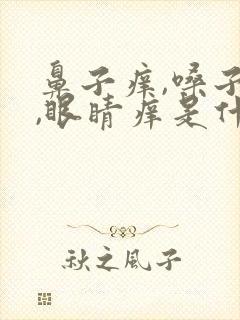 鼻子痒,嗓子
,眼睛痒是什
秋之风子